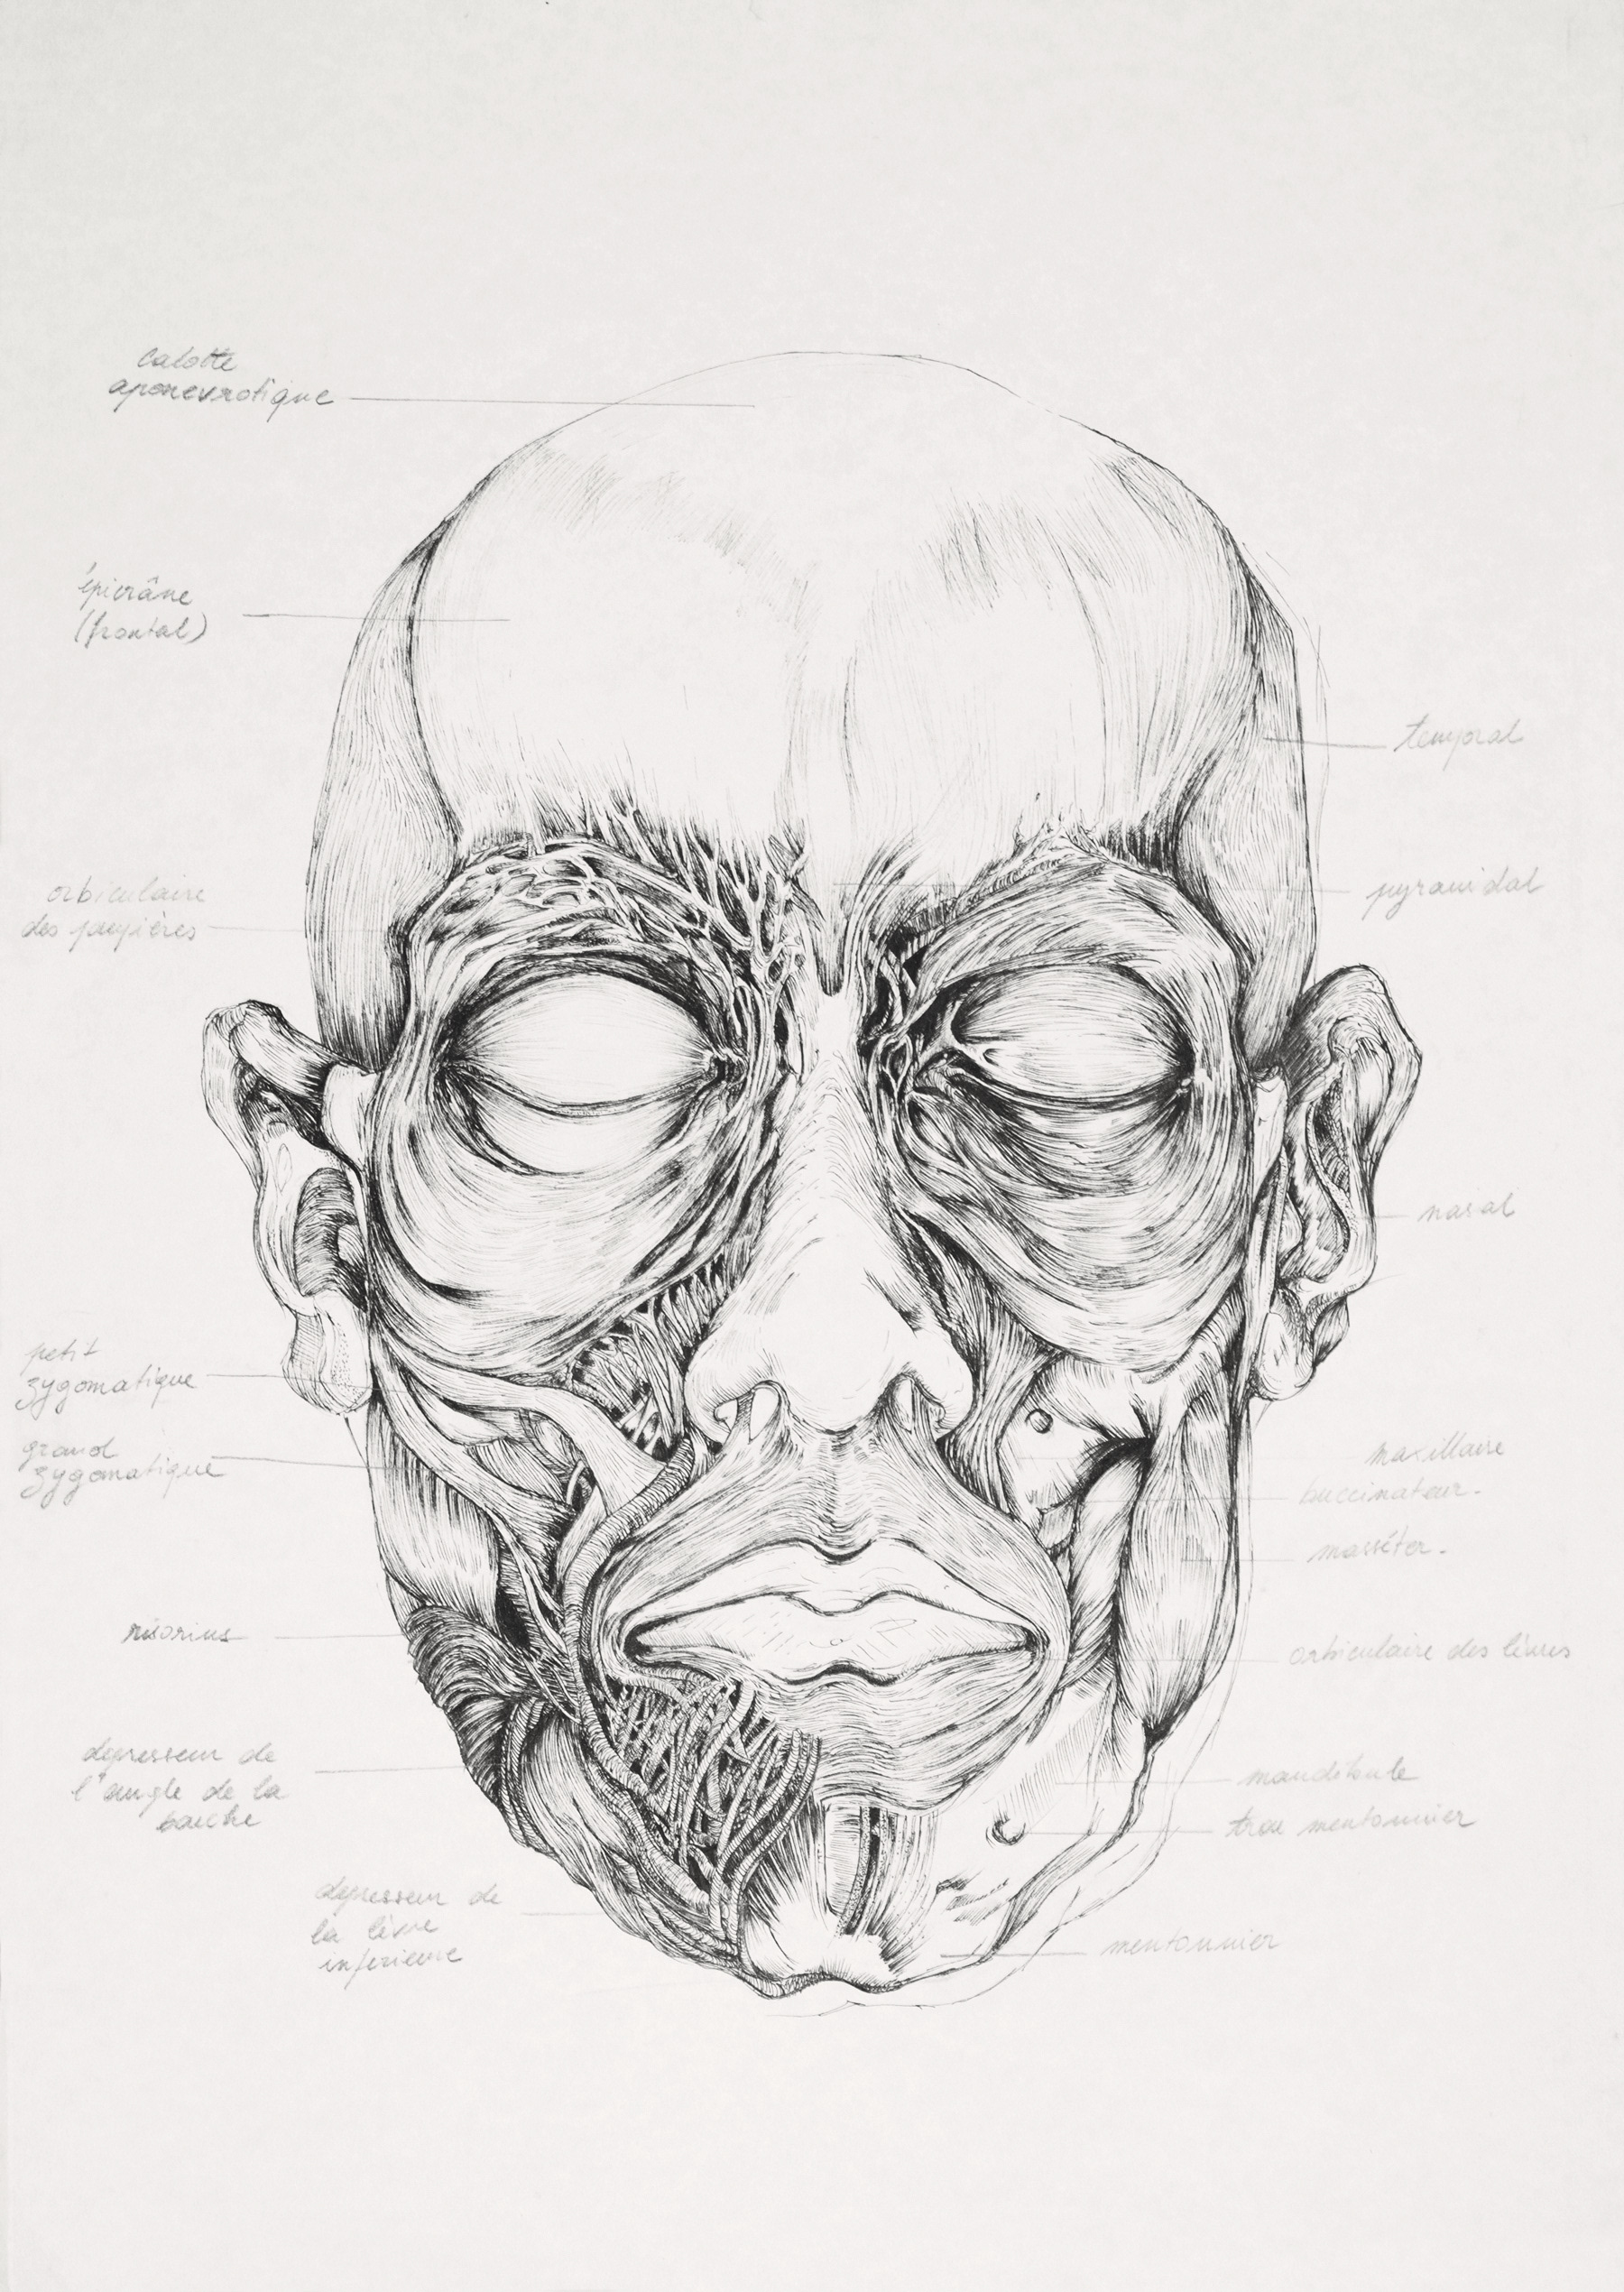 calotte
aponevrotique
épicrâne
(frontal)
temporal
orbiculaire
des paupières
pyramidal
nasal
petit
zygomatique
grand
zygomatique
maxillaire
buccinateur.
masséter.
risorius
orbiculaire des lèvres
depresseur de
l'angle de la
bouche
mandibule
trou mentonnier
depresseur de
la lèvre
inferieure
mentonnier